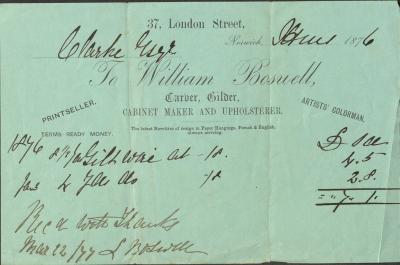 37, London Street,
Clarke Esqr Norwich, Xmas 1876
To William Boswell,
Carver, Gilder,
CABINET MAKER AND UPHOLSTERER.
PRINTSELLER.
ARTISTS' COLORMAN.
TERMS—READY MONEY.
The latest Novelties of design in Paper Hangings, French & English,
always arriving.
1876 Gilt wire at
4.5
Jas 4 Yds do 2.8.
" 7. 1.
Recd with Thanks
Mar 22/77 Boswell